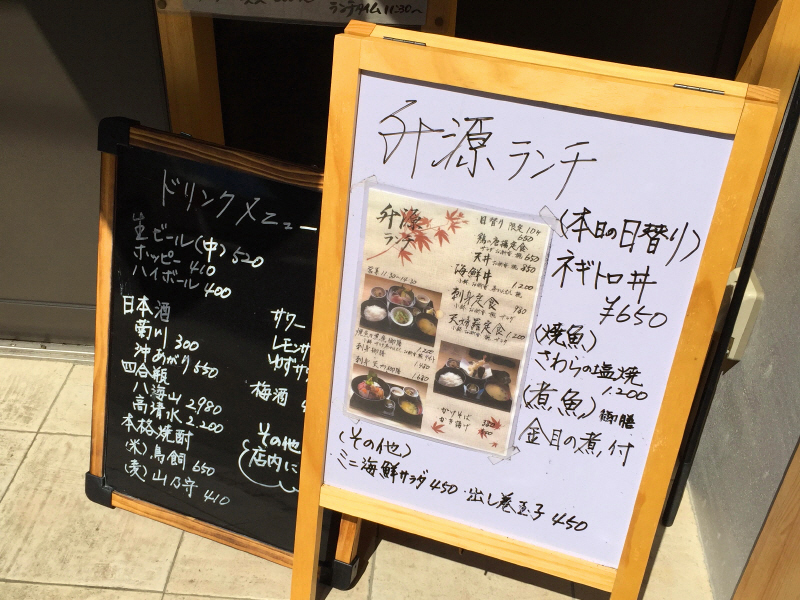 ランチタイム 11:30〜
ドリンクメニュー
生ビール(中) 520
ホッピー 410
ハイボール 400
日本酒
菊川 300
沖あがり 550
四合瓶
八海山 2980
高清水 2.200
本格焼酎
(米)鳥飼 650
(麦)山乃守 410
サワー
レモンサ
ゆずサ
梅酒
その他
店内に
升源ランチ
升源
ランチ
日替り 限定10食
650
鶏の唐揚定食
650
天丼
850
海鮮丼
1.200
刺身定食
980
天婦羅定食 1.200
営業 11:30~14:30
1.200
刺身御膳 1.480
1.680
かけそば
かき揚げ
〈本日の日替り〉
ネギトロ丼
¥650
(焼魚)
さわらの塩焼
1.200
(煮魚) 御膳
金目の煮付
(その他)
ミニ海鮮サラダ 450・出し巻玉子 450